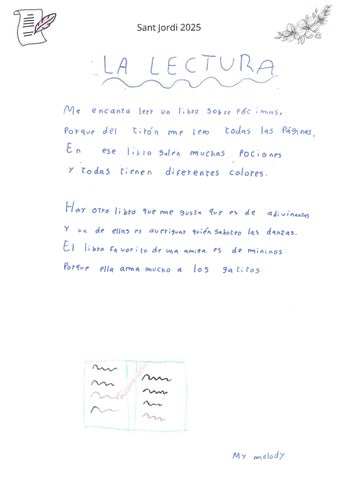 Sant Jordi 2025
LA LECTURA
Me encanta leer un libro sobre Pócimas,
Porque del tirón me leo todas las Páginas,
En ese libro salen muchas Pociones
y todas tienen diferentes colores.
Hay otro libro que me gusta que es de adivinanzas
y va de ellas es averiguar quién saboteo las danzas.
El libro favorito de una amiga es de mininos
Porque ella ama mucho a los gatitos
My melody